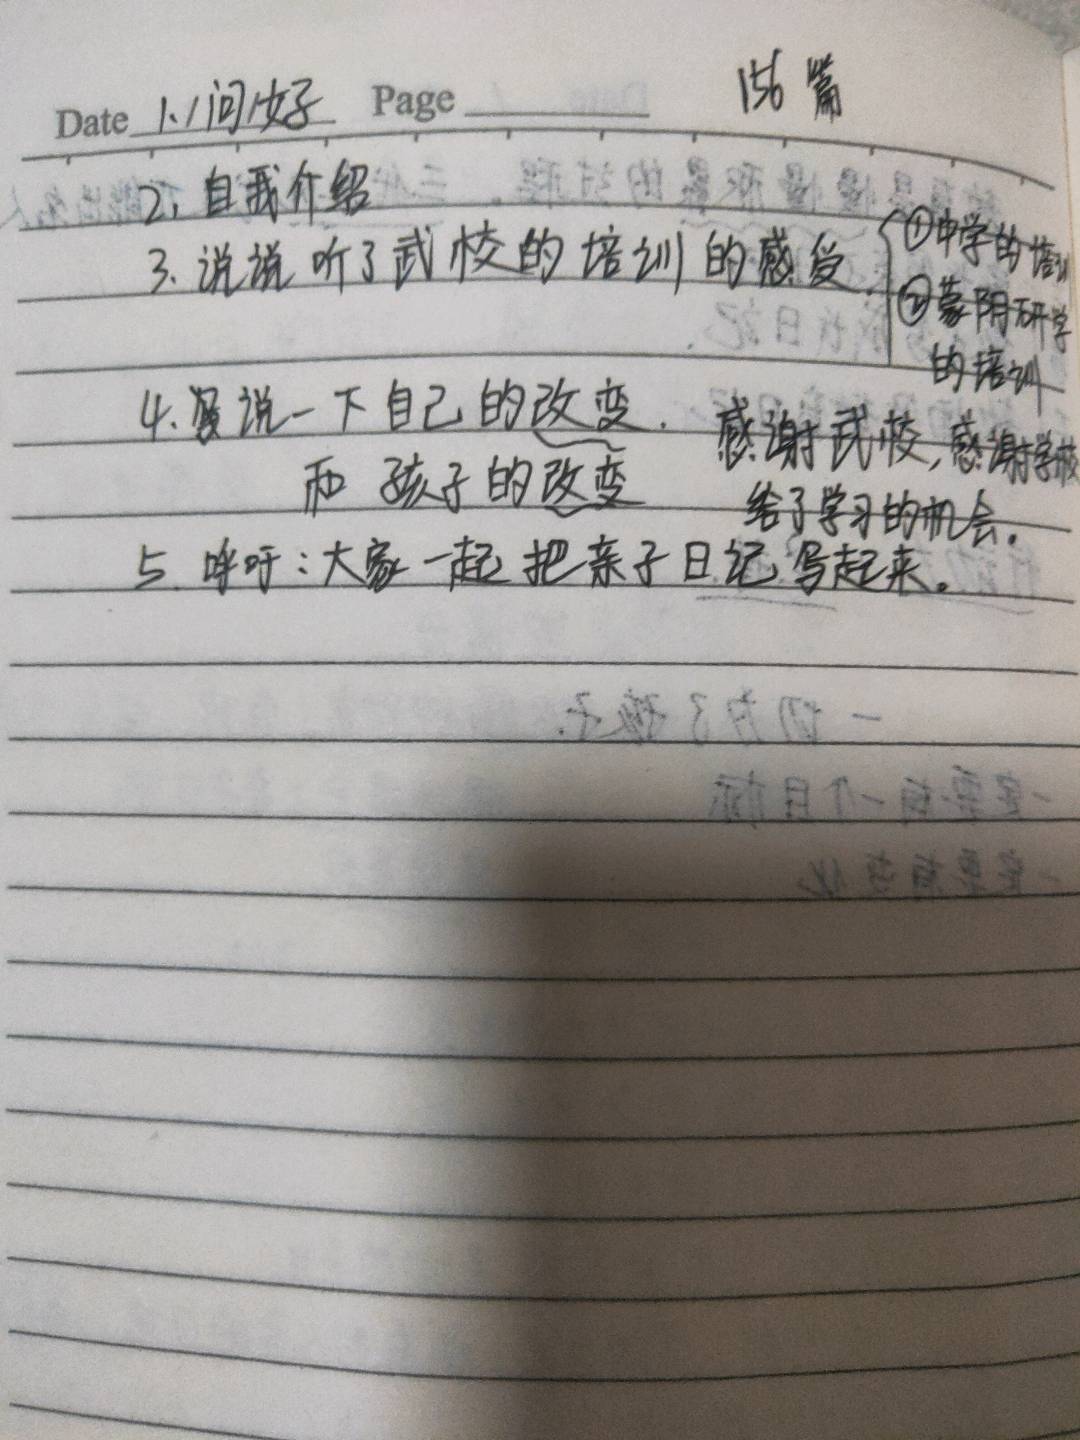 Date 1.问好 Page 156篇
2. 自我介绍
3. 说说听了武校的培训的感受.
①中学的培训
②蒙阴研学
的培训
4. 说一下自己的改变.
和 孩子的改变
感谢武校,感谢学校
给了学习的机会。
5. 呼吁:大家一起把亲子日记写起来。